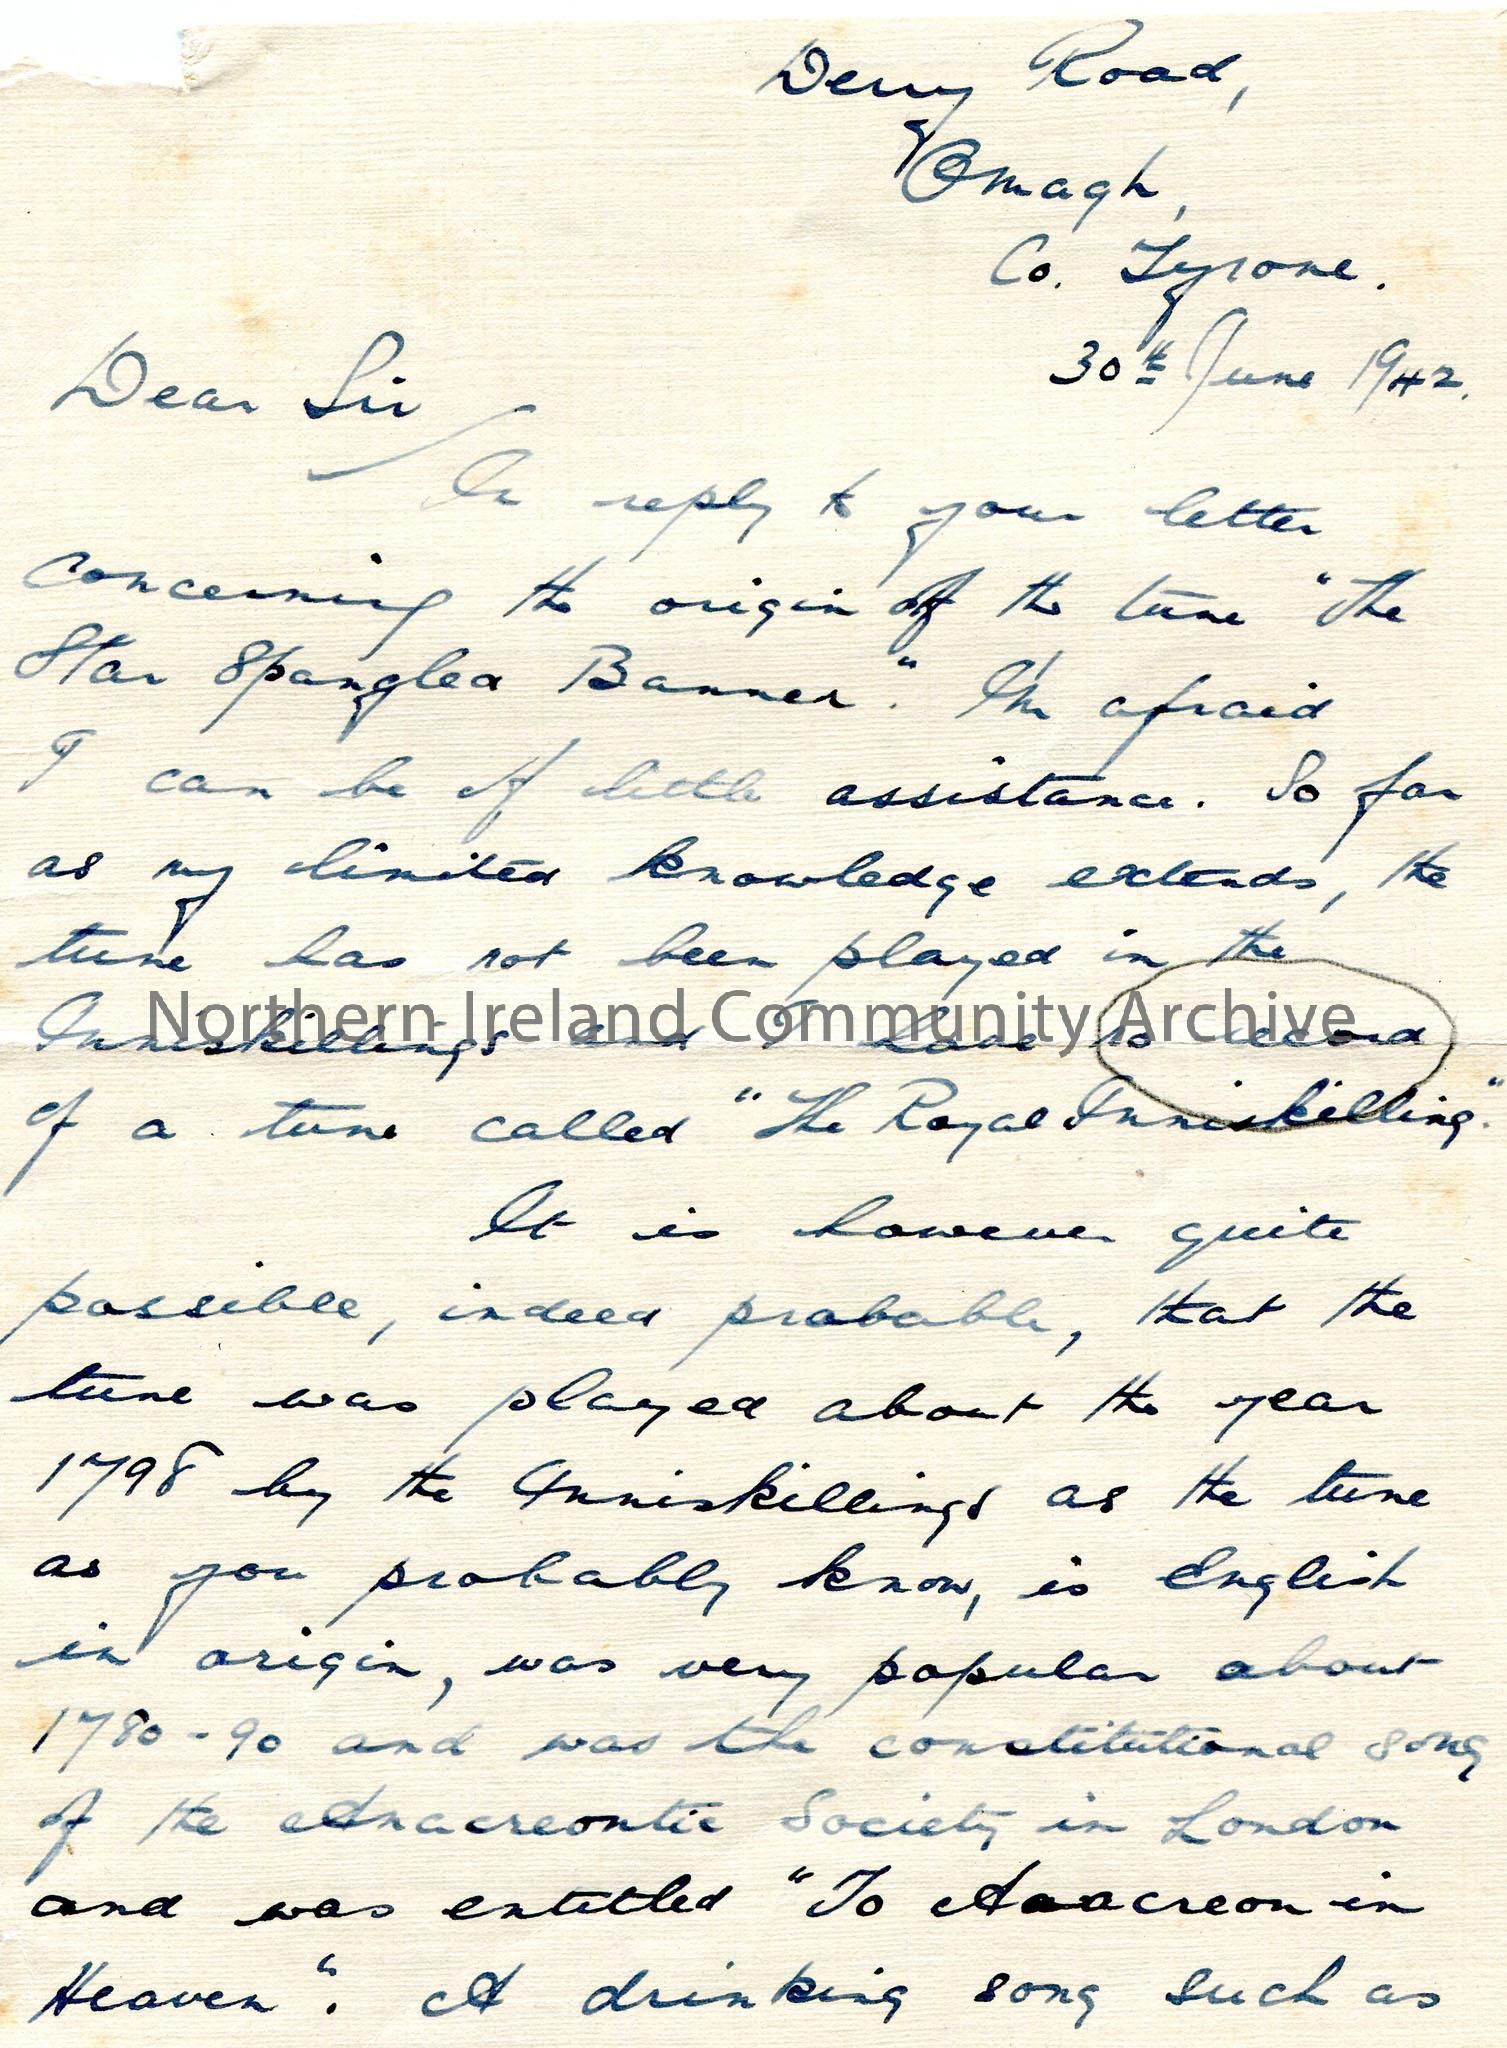 Derry Road,
Omagh,
Co. Tyrone.
30th June 1942.
Dear Sir
In reply to your letter
concerning the origin of the tune "The
Star Spangled Banner". I'm afraid
I can be of little assistance. So far
as my limited knowledge extends, the
tune has not been played in the
Inniskillings and I have no record
Northern Ireland Community Archive
of a tune called "The Royal Inniskilling".
It is however quite
possible, indeed probable, that the
tune was played about the year
1798 by the Inniskillings as the tune
as you probably know, is English
in origin, was very popular about
1780-90 and was the constitutional song
of the Anacreontic Society in London
and was entitled "To Anacreon in
Heaven". A drinking song such as